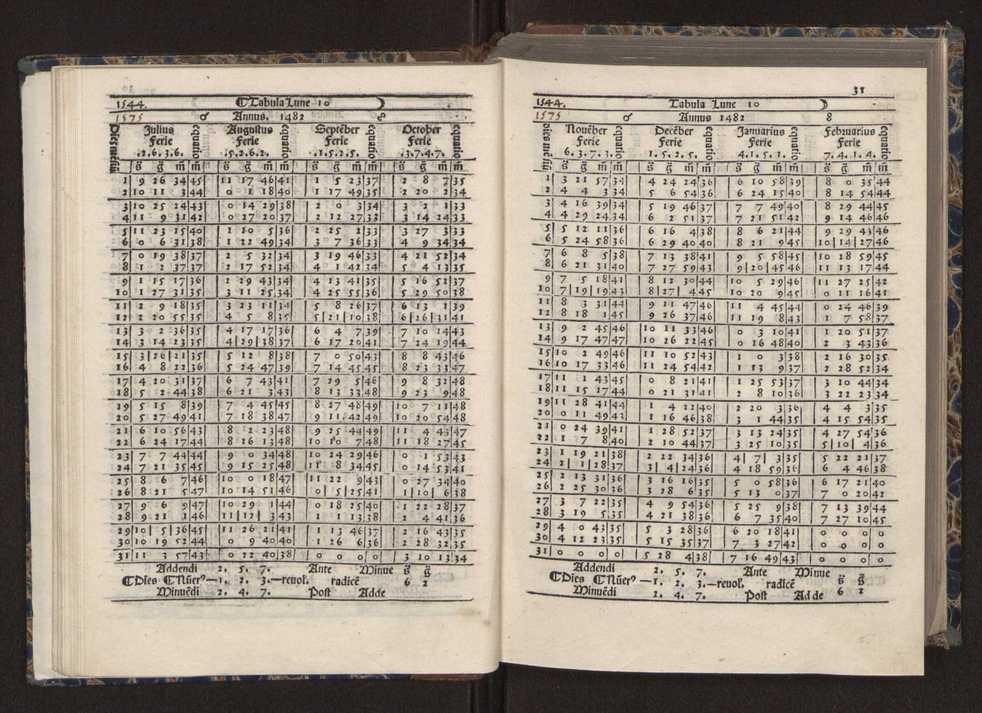 1544. ⁋Tabula Lune 10 ☽
1575 ♂ Annus. 1482 ☍
Julius Augustus Septēber October
ferie ferie ferie ferie
.2.6.3.6. .5.2.6.2. .1.5.2.5. .3.7.4.7.
s̄ ḡ m̄ m̄ s̄ ḡ m̄ m̄ s̄ ḡ m̄ m̄ s̄ ḡ m̄ m̄
1 9 26 34 45 11 17 46 41 1 5 23 37 2 8 7 35
2 10 11 3 44 0 1 18 40 1 17 49 35 2 20 2 34
3 10 25 24 43 0 14 29 38 2 0 3 34 3 2 1 33
4 11 9 31 42 0 27 20 37 2 12 27 33 3 14 24 33
5 11 23 15 40 1 10 5 36 2 25 2 33 3 27 3 33
6 0 6 31 38 1 22 49 34 3 7 36 33 4 9 34 34
7 0 19 38 37 2 5 32 34 3 19 46 33 4 21 52 34
8 1 2 37 37 2 17 52 34 4 1 42 34 5 4 13 35
9 1 15 17 2 29 43 34 4 13 41 35 5 16 52 37
10 1 27 31 35 3 11 25 34 4 25 55 36 5 29 50 38
11 2 9 18 35 3 23 11 34 5 8 26 37 6 13 2 39
12 2 20 55 35 4 5 8 35 5 21 10 38 6 26 31 41
13 3 2 36 35 4 17 17 36 6 4 7 39 7 10 14 43
14 3 14 23 35 4 29 38 37 6 17 20 41 7 24 19 44
15 3 26 21 35 5 12 8 38 7 0 50 43 8 8 43 46
16 4 8 22 36 5 24 47 39 7 14 45 45 8 23 33 47
17 4 20 31 37 6 7 43 41 7 29 5 46 9 8 32 48
18 5 2 44 38 6 21 3 43 8 13 33 48 9 23 9 48
19 5 15 8 39 7 4 45 45 8 27 48 49 10 7 11 48
20 5 27 49 41 7 18 38 47 9 11 42 49 10 9 54 48
21 6 10 56 43 8 2 23 48 9 25 44 49 11 4 43 47
22 6 24 17 44 8 16 13 48 10 10 7 48 11 18 27 45
23 7 7 44 44 9 0 34 48 10 24 29 46 0 1 53 43
24 7 21 35 45 9 15 25 48 11 8 34 45 0 14 53 41
25 8 6 7 46 10 0 18 47 11 22 9 43 0 27 34 40
26 8 21 5 47 10 14 51 46 0 5 25 41 1 10 6 38
27 9 6 9 47 10 29 1 44 0 18 25 40 1 22 28 37
28 9 21 1 46 11 12 3 43 1 1 13 38 2 4 41 36
29 10 5 36 45 11 26 21 41 1 13 46 37 2 16 43 35
30 10 19 52 44 0 9 40 46 1 26 6 36 2 28 32 35
31 11 3 57 43 0 22 40 38 0 0 0 0 3 10 13 34
Addendi 2. 5. 7. Ante Minue s̄ ḡ
⁋Dies ⁋Nūer⁹ 1. 2. 3. reuol. radicē 6 2
Minuēdi 2. 4. 7. Post Adde
31
1544. Tabula Lune 10 ☽
1575 ♂ Annus 1482 8
Nouēber Decēber Januarius Februarius
Ferie Ferie Ferie Ferie
6. 3. 7. 3. 1. 5. 2. 5. 4. 1. 5. 1. 7. 4. 1. 4.
s̄ ḡ m̄ m̄ s̄ ḡ m̄ m̄ s̄ ḡ m̄ m̄ s̄ ḡ m̄ m̄
1 3 21 57 34 4 24 24 36 6 10 58 39 8 0 35 44
2 4 4 3 34 5 6 54 36 6 24 15 40 8 14 54 44
3 4 16 39 34 5 19 46 37 7 7 49 40 8 29 44 45
4 4 29 24 34 6 2 51 37 7 21 51 42 9 14 46 46
5 5 12 11 36 6 16 4 38 8 6 21 44 9 29 43 46
6 5 24 58 36 6 29 40 40 8 21 9 45 10 14 27 46
7 6 8 5 38 7 13 38 41 9 5 58 45 10 28 59 45
8 6 21 31 40 7 27 59 43 9 20 45 46 11 13 17 44
9 7 5 18 41 8 12 30 44 10 5 29 46 11 27 25 42
10 7 19 19 43 8 27 4 45 10 20 9 45 0 11 16 41
11 8 3 31 44 9 11 47 46 11 4 45 44 0 24 46 39
12 8 18 1 45 9 26 37 46 11 19 8 43 1 7 58 37
13 9 2 45 46 10 11 33 46 0 3 10 41 1 20 51 37
14 9 17 47 47 10 26 22 45 0 16 48 40 2 3 43 36
15 10 2 49 46 11 10 52 43 1 0 3 38 2 16 30 35
16 10 17 33 46 11 24 54 42 1 13 9 37 2 28 52 34
17 11 1 43 45 0 8 21 41 1 25 53 37 3 10 44 34
18 11 15 17 44 0 21 31 41 2 8 10 36 3 22 23 34
19 11 28 41 44 1 4 22 40 2 20 3 36 4 4 3 35
20 0 11 49 43 1 16 46 38 3 1 44 35 4 15 54 35
21 0 24 39 41 1 28 52 37 3 13 24 35 4 27 54 36
22 1 7 8 40 2 10 44 37 3 25 10 35 5 10 4 36
23 1 19 21 38 2 22 34 36 4 7 3 35 5 22 21 37
24 2 1 28 37 3 4 24 36 4 18 59 36 6 4 46 38
25 2 13 31 36 3 16 16 35 5 0 58 36 6 17 21 40
26 2 25 30 36 3 28 6 35 5 13 0 37 7 0 20 42
27 3 7 22 35 4 9 54 36 5 25 9 38 7 13 39 44
28 3 19 5 35 4 21 38 36 6 7 35 40 7 27 10 45
29 4 0 43 35 5 3 28 36 6 20 18 41 0 0 0 0
30 4 12 23 35 5 15 35 37 7 3 27 42 0 0 0 0
31 0 0 0 0 5 28 4 38 7 16 49 43 0 0 0 0
Addendi 2. 5. 7. Ante Minue s̄ ḡ
⁋Dies ⁋Nūer⁹ 1. 2. 3. reuol. radicē
Minuēdi 2. 4. 7. Post Adde 6 2